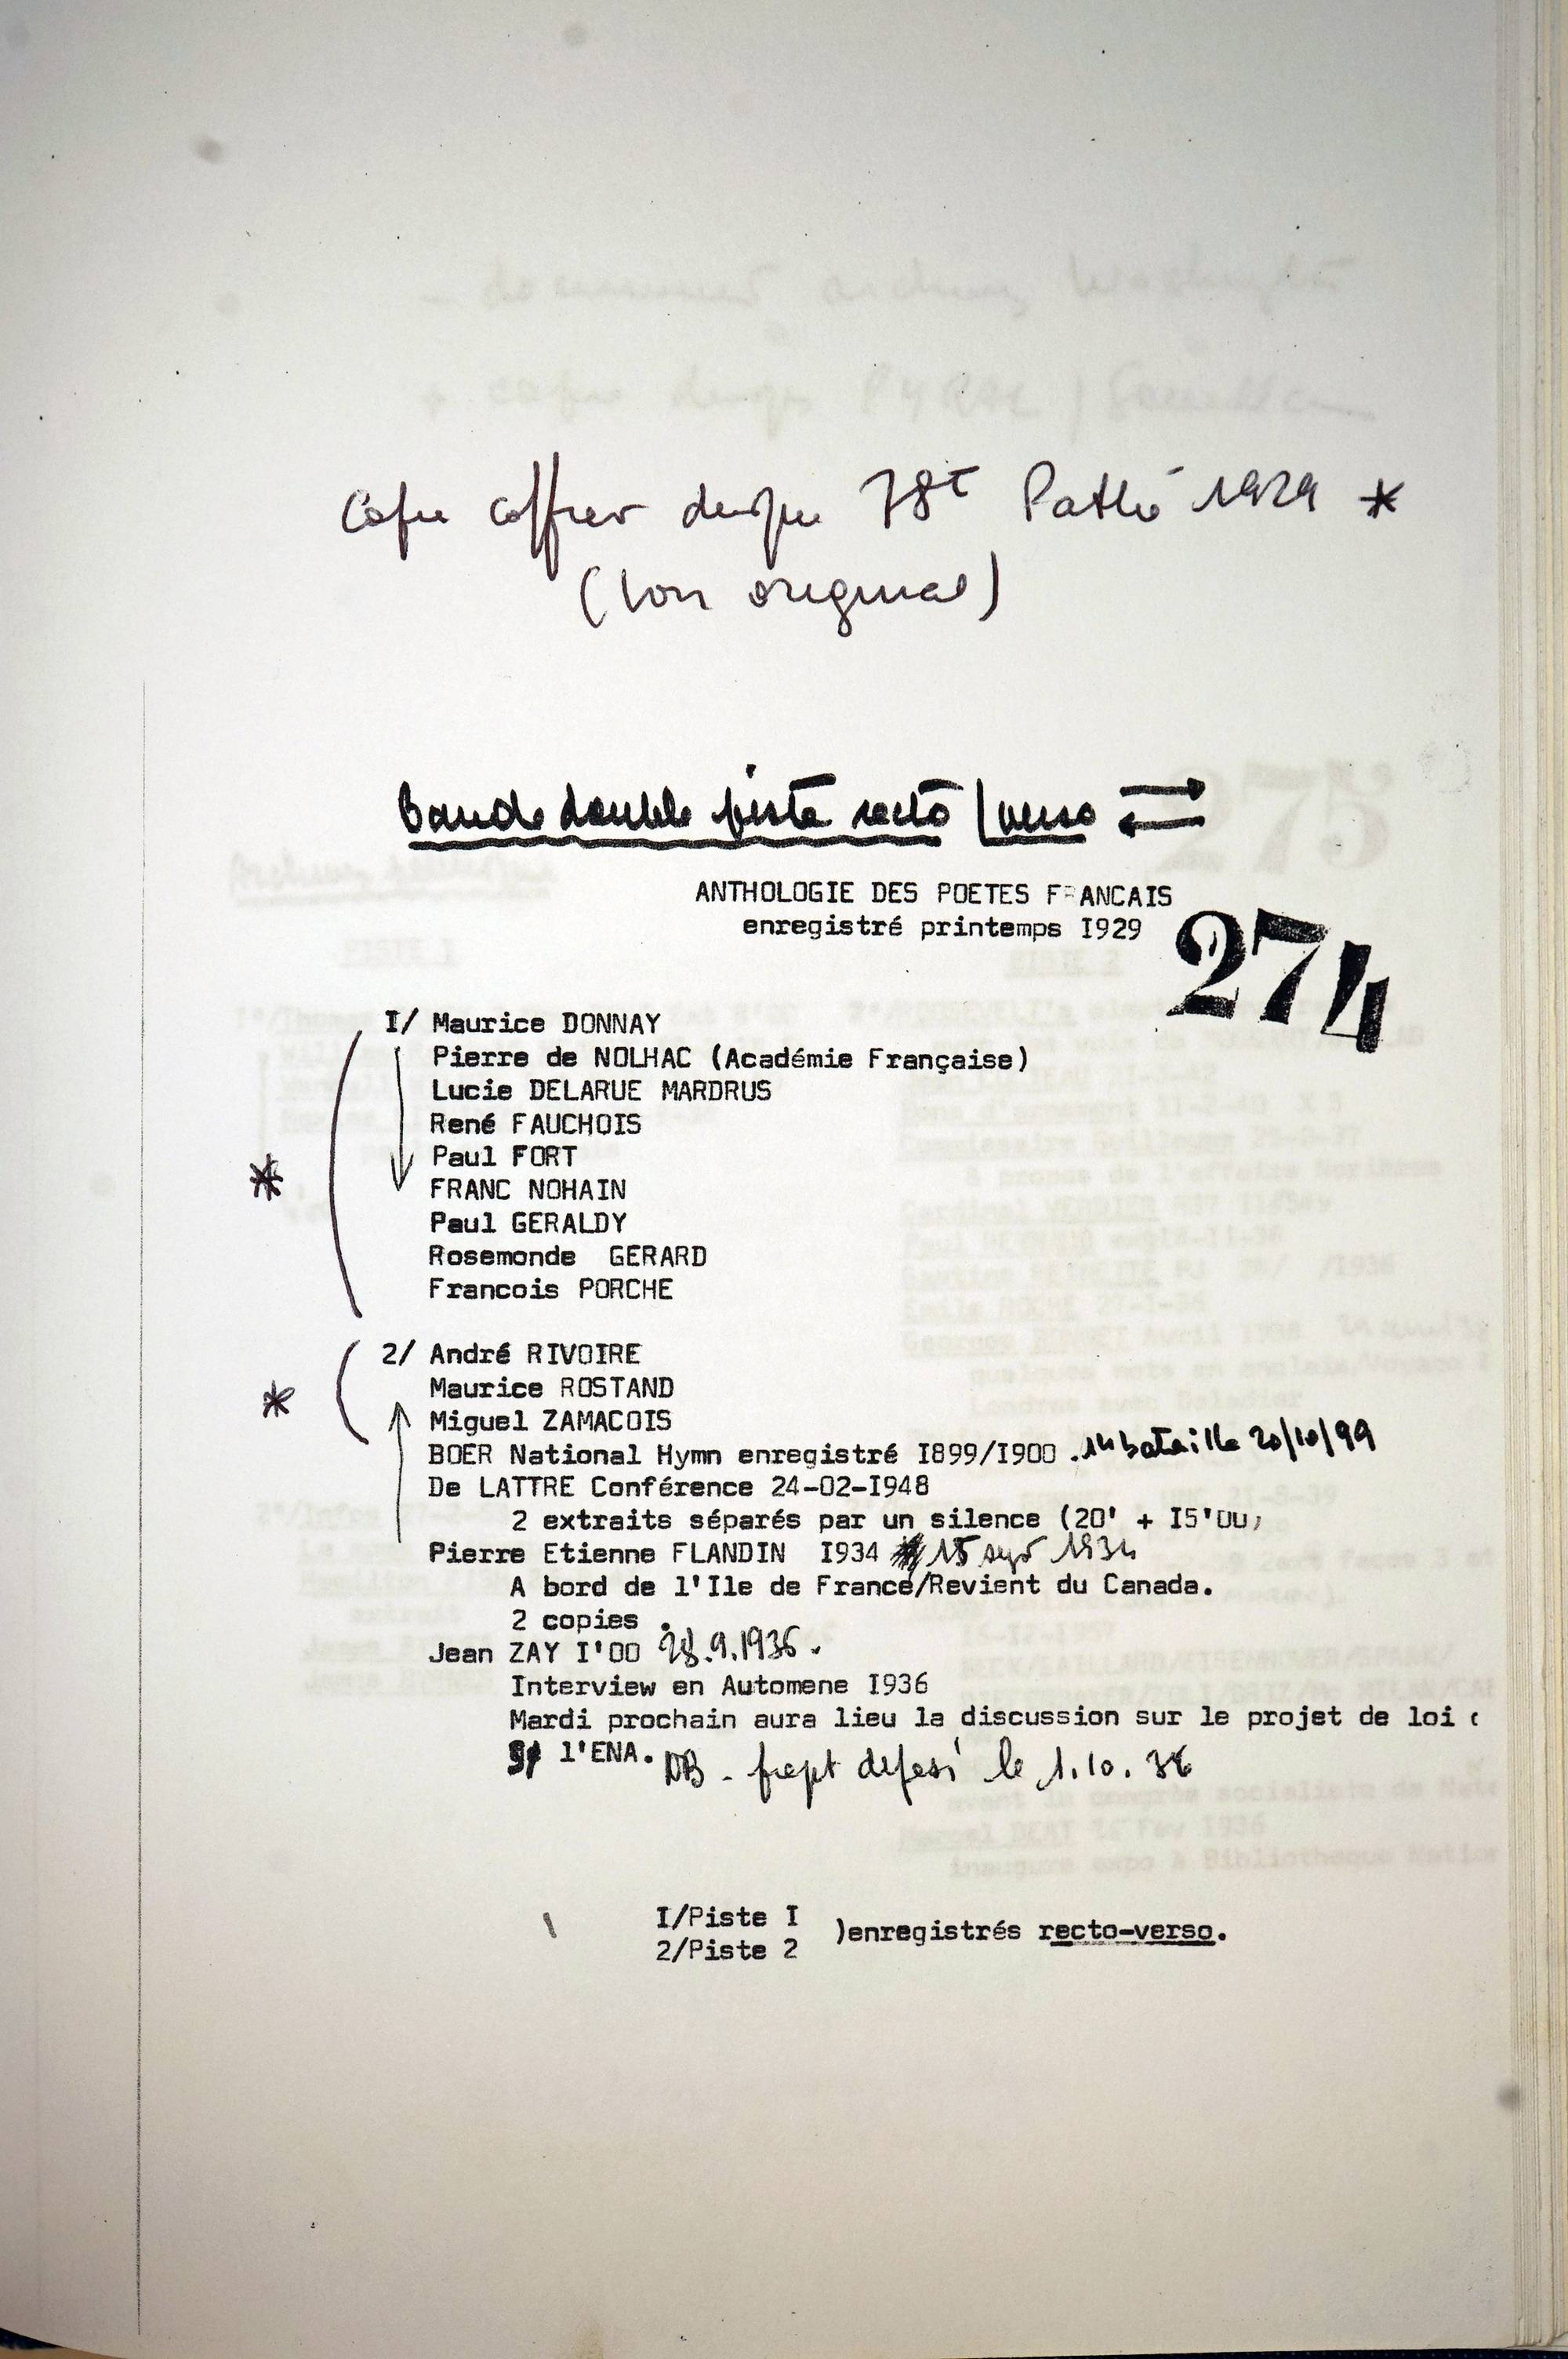 Copie coffret disque 78t Pathé 1929 *
(bon original)
Bande double piste recto/verso
ANTHOLOGIE DES POETES FRANCAIS
enregistré printemps I929
274
I/ Maurice DONNAY
Pierre de NOLHAC (Académie Française)
Lucie DELARUE MARDRUS
René FAUCHOIS
Paul FORT
* FRANC NOHAIN
Paul GERALDY
Rosemonde GERARD
Francois PORCHE
2/ André RIVOIRE
Maurice ROSTAND
* Miguel ZAMACOIS
BOER National Hymn enregistré I899/I900 . bataille 20/10/99
De LATTRE Conférence 24-02-I948
2 extraits séparés par un silence (20' + I5'00)
Pierre Etienne FLANDIN I934 15 sept 1934
A bord de l'Ile de France/Revient du Canada.
2 copies .
Jean ZAY I'00 28.9.1936.
Interview en Automene I936
Mardi prochain aura lieu la discussion sur le projet de loi
l'ENA. NB - déposé le 1.10.36
I/Piste I
)enregistrés recto-verso.
2/Piste 2